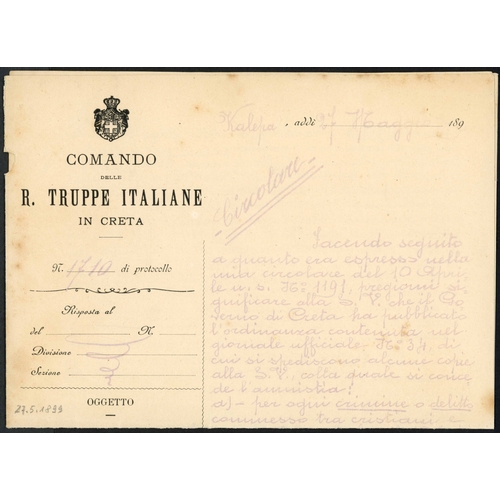 COMANDO
DELLE
R. TRUPPE ITALIANE
IN CRETA
N. 1710 di protocollo
Risposta al
del N.
Divisione
Sezione
OGGETTO
27.5.1899
Kalepa, addì 27 Maggio 189
Circolare
Facendo seguito
a quanto era espresso nella
mia circolare del 10 Apri=
le u. s. No 1191, pregiomi si=
gnificare alla S. V. che il Go
verno di Creta ha pubblicato
l'ordinanza contenuta nel
giornale ufficiale No 34, di
cui si spediscono alcune copie
alla S. V. colla quale si conce
de l'amnistia:
a) - per ogni crimine o delitto
commesso tra cristiani e